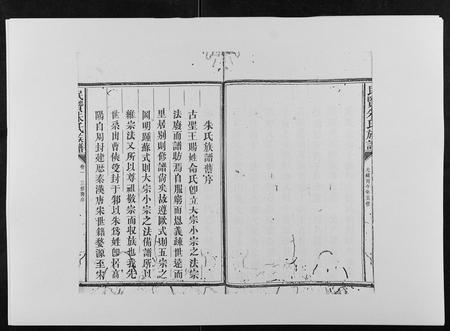 朱氏族譜舊序
古聖王賜姓命氏卽立大宗小宗之法宗
法廢而譜昉焉自服窮而恩義疎世遠而
里居别則修譜尚矣故遵歐式則五宗之
圖明踵蘇式則大宗小宗之法備譜所以
維宗法又所以尊祖敬宗而收族也我先
世系由曹俠受封于邾以朱爲姓
陽自周封建歷秦漢唐宋世籍婺源至宋
朱氏族譜
卷一